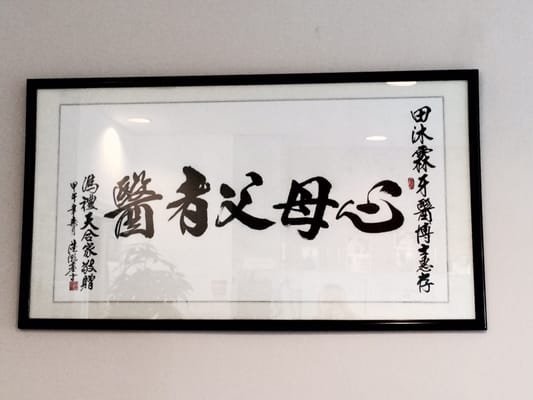 田沐霖牙醫博士惠存
醫者父母心
馮禮天合家敬贈
甲午年春月